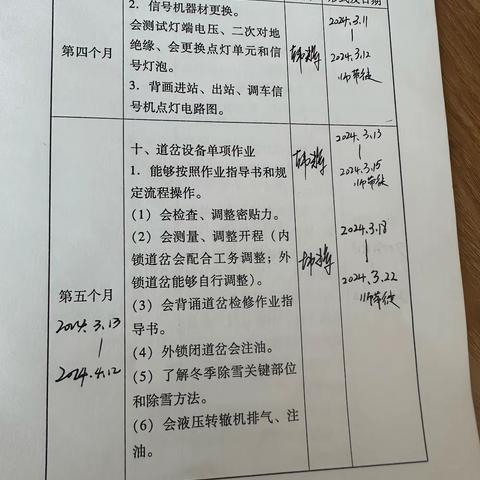 形式及日期
2．信号机器材更换。
会测试灯端电压、二次对地
绝缘、会更换点灯单元和信
号灯泡。
3．背画进站、出站、调车信
号机点灯电路图。
第四个月
2024.3.11
2024.3.12
师带徒
十、道岔设备单项作业
1．能够按照作业指导书和规
定流程操作。
（1）会检查、调整密贴力。
（2）会测量、调整开程（内
锁道岔会配合工务调整；外
锁道岔能够自行调整）。
（3）会背诵道岔检修作业指
导书。
（4）外锁闭道岔会注油。
（5）了解冬季除雪关键部位
和除雪方法。
（6）会液压转辙机排气、注
油。
第五个月
2024.3.13
2024.4.12
2024.3.13
2024.3.15
师带徒
2024.3.18
2024.3.22
师带徒